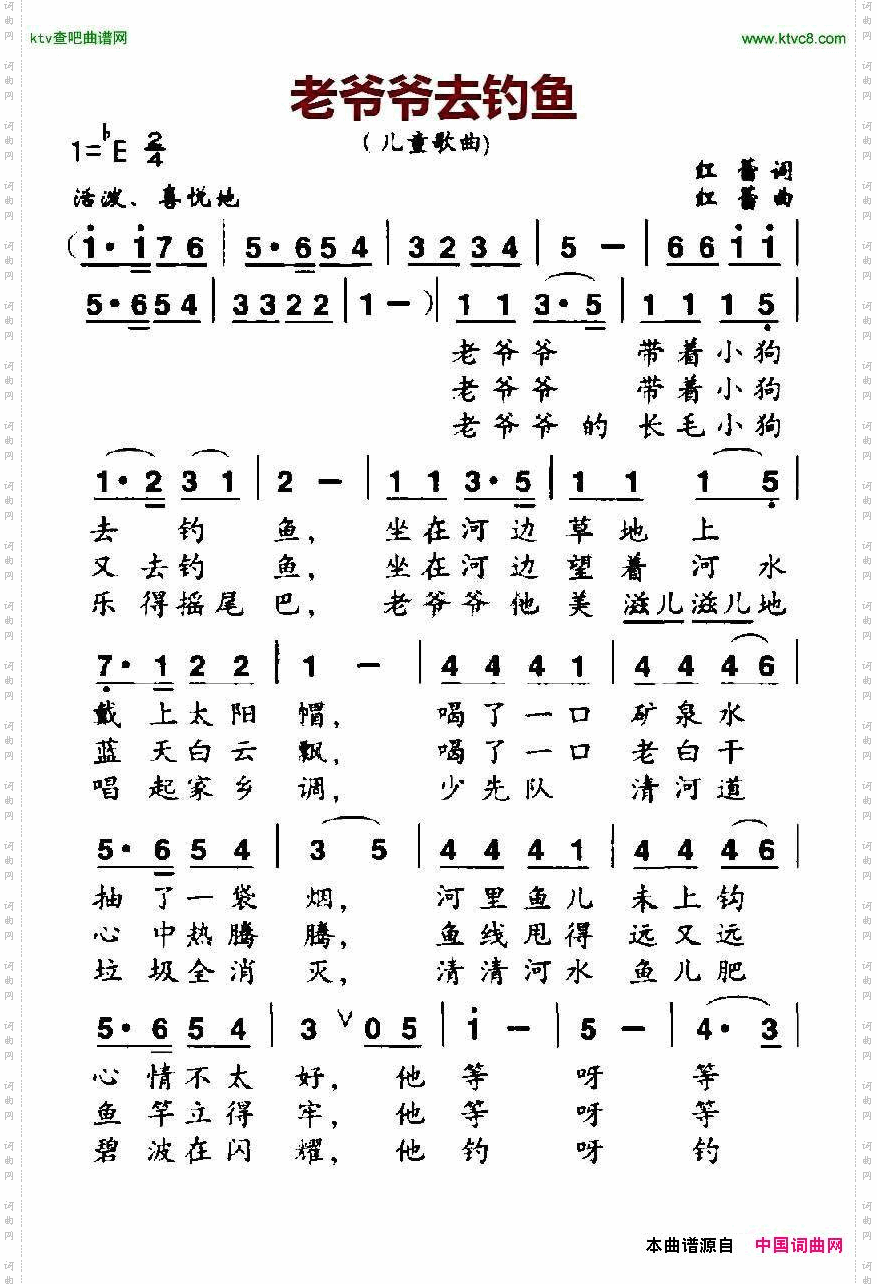 ktv查吧曲谱网 www.ktvc8.com
老爷爷去钓鱼
(儿童歌曲)
1=♭E 2/4
红蕾词
活泼、喜悦地
红蕾曲
(i·i76 | 5·654 | 3234 | 5 — | 66ii |
5·654 | 3322 | 1 — ) | 11 3·5 | 1115 |
老爷爷 带着小狗
老爷爷 带着小狗
老爷爷的长毛小狗
1·2 31 | 2 — | 11 3·5 | 11 15 |
去钓鱼, 坐在河边草地上
又去钓鱼, 坐在河边望着河水
乐得摇尾巴, 老爷爷他美滋儿滋儿地
7·1 22 | 1 — | 4441 | 4446 |
戴上太阳帽, 喝了一口矿泉水
蓝天白云飘, 喝了一口老白干
唱起家乡调, 少先队清河道
5·6 54 | 3 5 | 4441 | 4446 |
抽了一袋烟, 河里鱼儿未上钩
心中热腾腾, 鱼线甩得远又远
垃圾全消灭, 清清河水鱼儿肥
5·6 54 | 3 ∨ 05 | i — | 5 — | 4·3 |
心情不太好, 他等呀等
鱼竿立得牢, 他等呀等
碧波在闪耀, 他钓呀钓
本曲谱源自 中国词曲网
词曲网